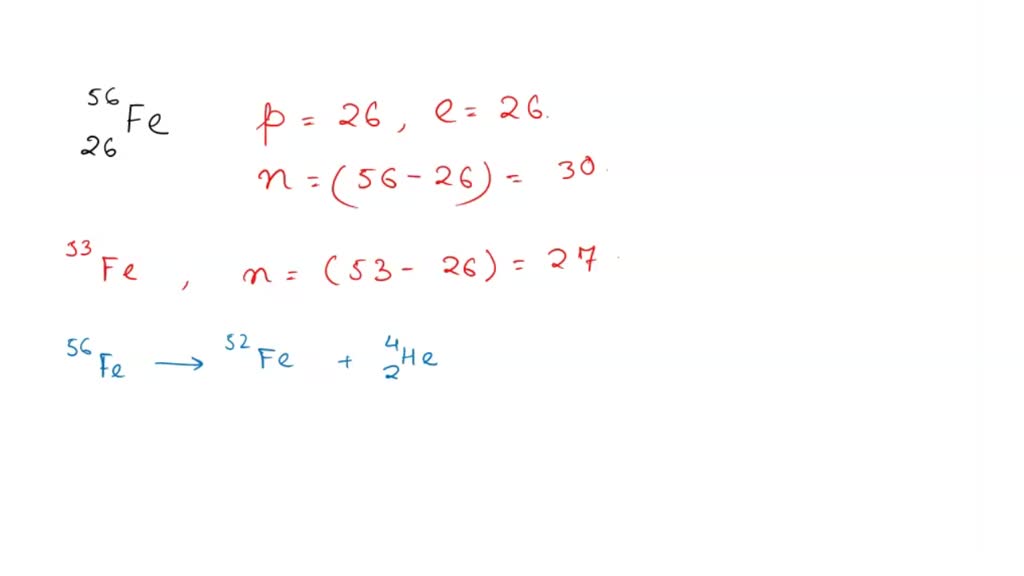 ⁵⁶₂₆Fe p = 26 , e = 26.
n = (56 - 26) = 30.
⁵³Fe , n = (53 - 26) = 27
⁵⁶Fe → ⁵²Fe + ⁴₂He